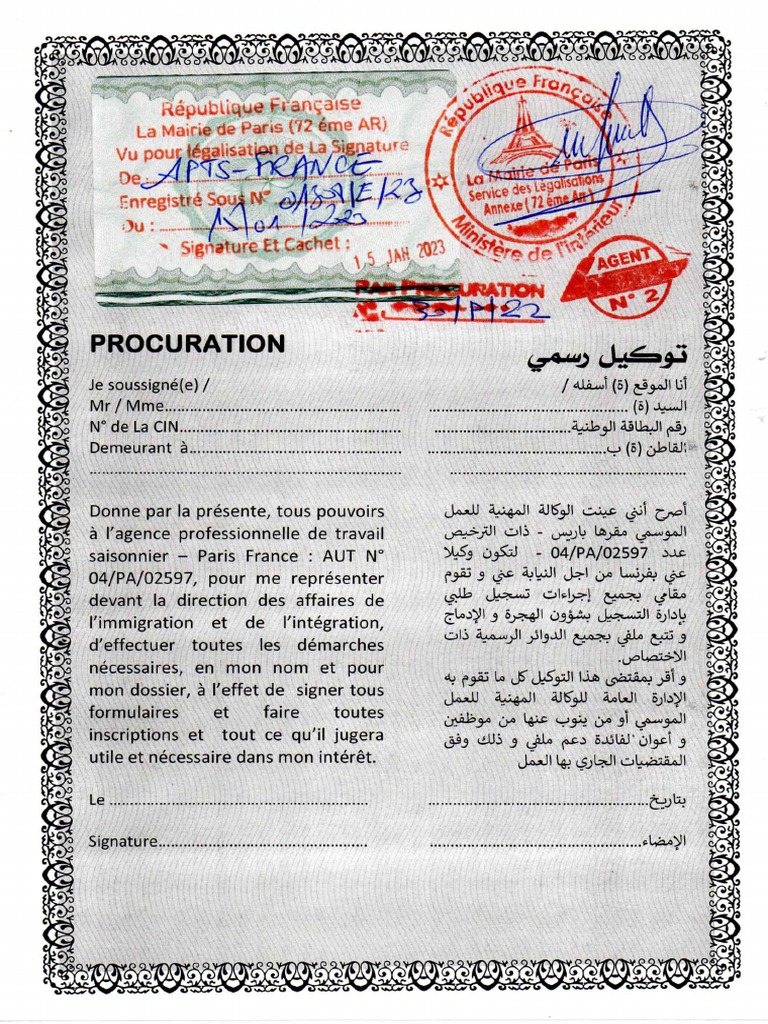 République Française
La Mairie de Paris (72 éme AR)
Vu pour légalisation de La Signature
De : APTS-FRANCE
Enregistré Sous N°
Du :
Signature Et Cachet :
15 JAN 2023
République Française
La Mairie de Paris
Service des Légalisations
Annexe (72 éme Ar)
Ministère de l'intérieur
PAR PROCURATION
AGENT
N° 2
PROCURATION
Je soussigné(e) /
Mr / Mme
N° de La CIN
Demeurant à
Donne par la présente, tous pouvoirs
à l'agence professionnelle de travail
saisonnier – Paris France : AUT N°
04/PA/02597, pour me représenter
devant la direction des affaires de
l'immigration et de l'intégration,
d'effectuer toutes les démarches
nécessaires, en mon nom et pour
mon dossier, à l'effet de signer tous
formulaires et faire toutes
inscriptions et tout ce qu'il jugera
utile et nécessaire dans mon intérêt.
Le
Signature
توكيل رسمي
أنا الموقع (ة) أسفله /
السيد (ة)
رقم البطاقة الوطنية
القاطن (ة) ب
أصرح أنني عينت الوكالة المهنية للعمل
الموسمي مقرها باريس - ذات الترخيص
عدد 04/PA/02597 - لتكون وكيلا
عني بفرنسا من اجل النيابة عني و تقوم
مقامي بجميع إجراءات تسجيل طلبي
بإدارة التسجيل بشؤون الهجرة و الإدماج
و تتبع ملفي بجميع الدوائر الرسمية ذات
الاختصاص.
و أقر بمقتضى هذا التوكيل كل ما تقوم به
الإدارة العامة للوكالة المهنية للعمل
الموسمي أو من ينوب عنها من موظفين
و أعوان لفائدة دعم ملفي و ذلك وفق
المقتضيات الجاري بها العمل
بتاريخ
الإمضاء